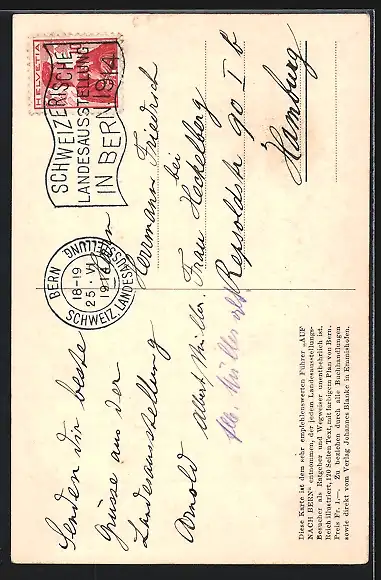 HELVETIA
SCHWEIZERISCHE
LANDESAUSSTELLUNG
IN BERN 1914
BERN
18-19
25. VI.
1914
SCHWEIZ. LANDESAUSSTELLUNG
Herrmann Friedrich
bei
Frau Heckelberg
Repsoldstr 90 I b
Hamburg
Senden dir beste
Grüsse aus der
Landesausstellung
Arnold
Albert Müller.
Diese Karte ist dem sehr empfehlenswerten Führer „AUF
NACH BERN“ entnommen, der jedem Landesausstellungs-
Besucher als Ratgeber und Wegweiser unentbehrlich ist.
Reich illustriert, 120 Seiten Text, mit farbigem Plan von Bern.
Preis Fr. 1.—. Zu beziehen durch alle Buchhandlungen
sowie direkt vom Verlag Johannes Blanke in Emmishofen.